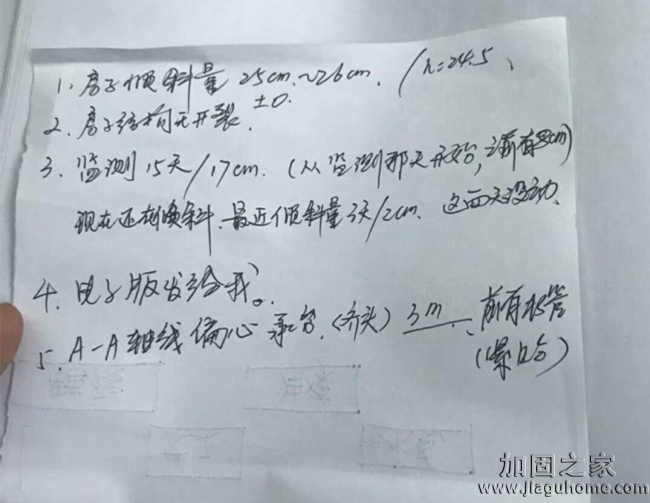 1、房子倾斜量 25cm~26cm. /h=24.5、
2、房子结构无开裂. ±0.
3、监测15天/17cm.(从监测那天开始,之前有8cm)
现在还在倾斜.最近倾斜量3天/2cm. 这两天没动.
4、电子版发给我。
5、A-A轴线偏心承台.(齐头) 3m 、前有水管
(爆)
加固之家
www.jiaguhome.com